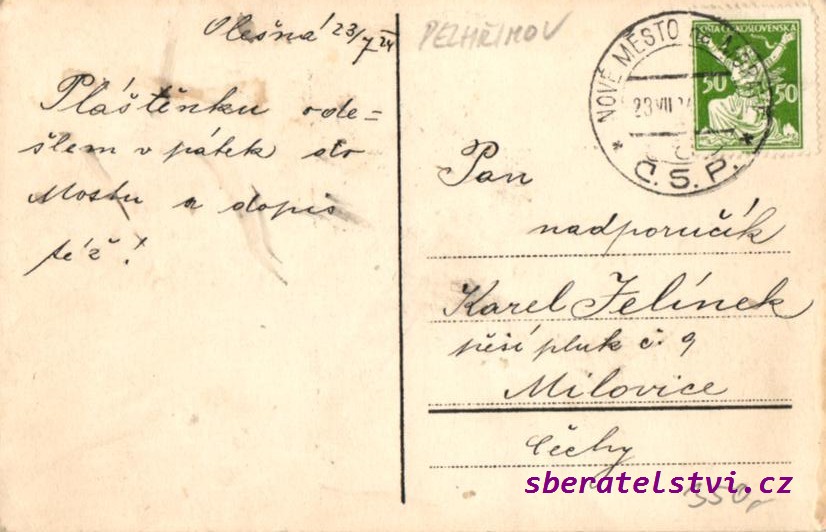 Olešná 23/7 24
Pláštěnku ode=
šlem v pátek do
Mostu a dopis
též!
PELHŘIMOV
NOVÉ MĚSTO NA MORAVĚ
23 VII 24
* Č.S.P. *
POŠTA ČESKOSLOVENSKÁ
50 50
Pan
nadporučík
Karel Jelínek
pěší pluk č. 9
Milovice
Čechy
350,-
sberatelstvi.cz